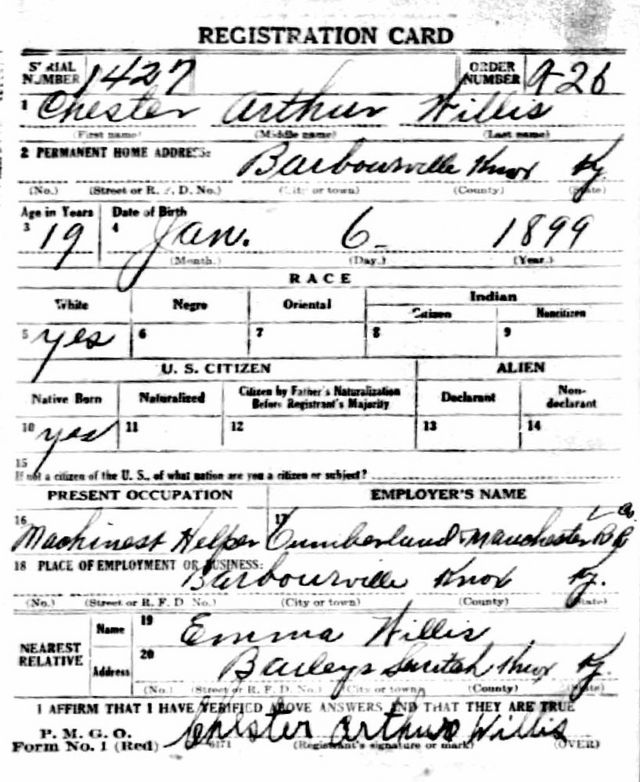 REGISTRATION CARD
SERIAL NUMBER 1427 ORDER NUMBER 926
1 Chester Arthur Willis
(First name) (Middle name) (Last name)
2 PERMANENT HOME ADDRESS:
Barbourville Knox Ky.
(No.) (Street or R. F. D. No.) (City or town) (County) (State)
Age in Years Date of Birth
3 19 4 Jan. 6 1899
(Month.) (Day.) (Year.)
RACE
White Negro Oriental Indian
Citizen Noncitizen
5 yes 6 7 8 9
U. S. CITIZEN ALIEN
Native Born Naturalized Citizen by Father's Naturalization Before Registrant's Majority Declarant Non-declarant
10 yes 11 12 13 14
15
If not a citizen of the U. S., of what nation are you a citizen or subject?
PRESENT OCCUPATION EMPLOYER'S NAME
16 Machinest Helper 17 Cumberland Manchester RR Co
18 PLACE OF EMPLOYMENT OR BUSINESS:
Barbourville Knox Ky.
(No.) (Street or R. F. D. No.) (City or town) (County) (State)
NEAREST RELATIVE
Name 19 Emma Willis
Address 20 Baileys Switch Knox Ky.
(No.) (Street or R. F. D. No.) (City or town) (County) (State)
I AFFIRM THAT I HAVE VERIFIED ABOVE ANSWERS AND THAT THEY ARE TRUE
P. M. G. O.
Form No. 1 (Red) Chester Arthur Willis
(Registrant's signature or mark) (OVER)